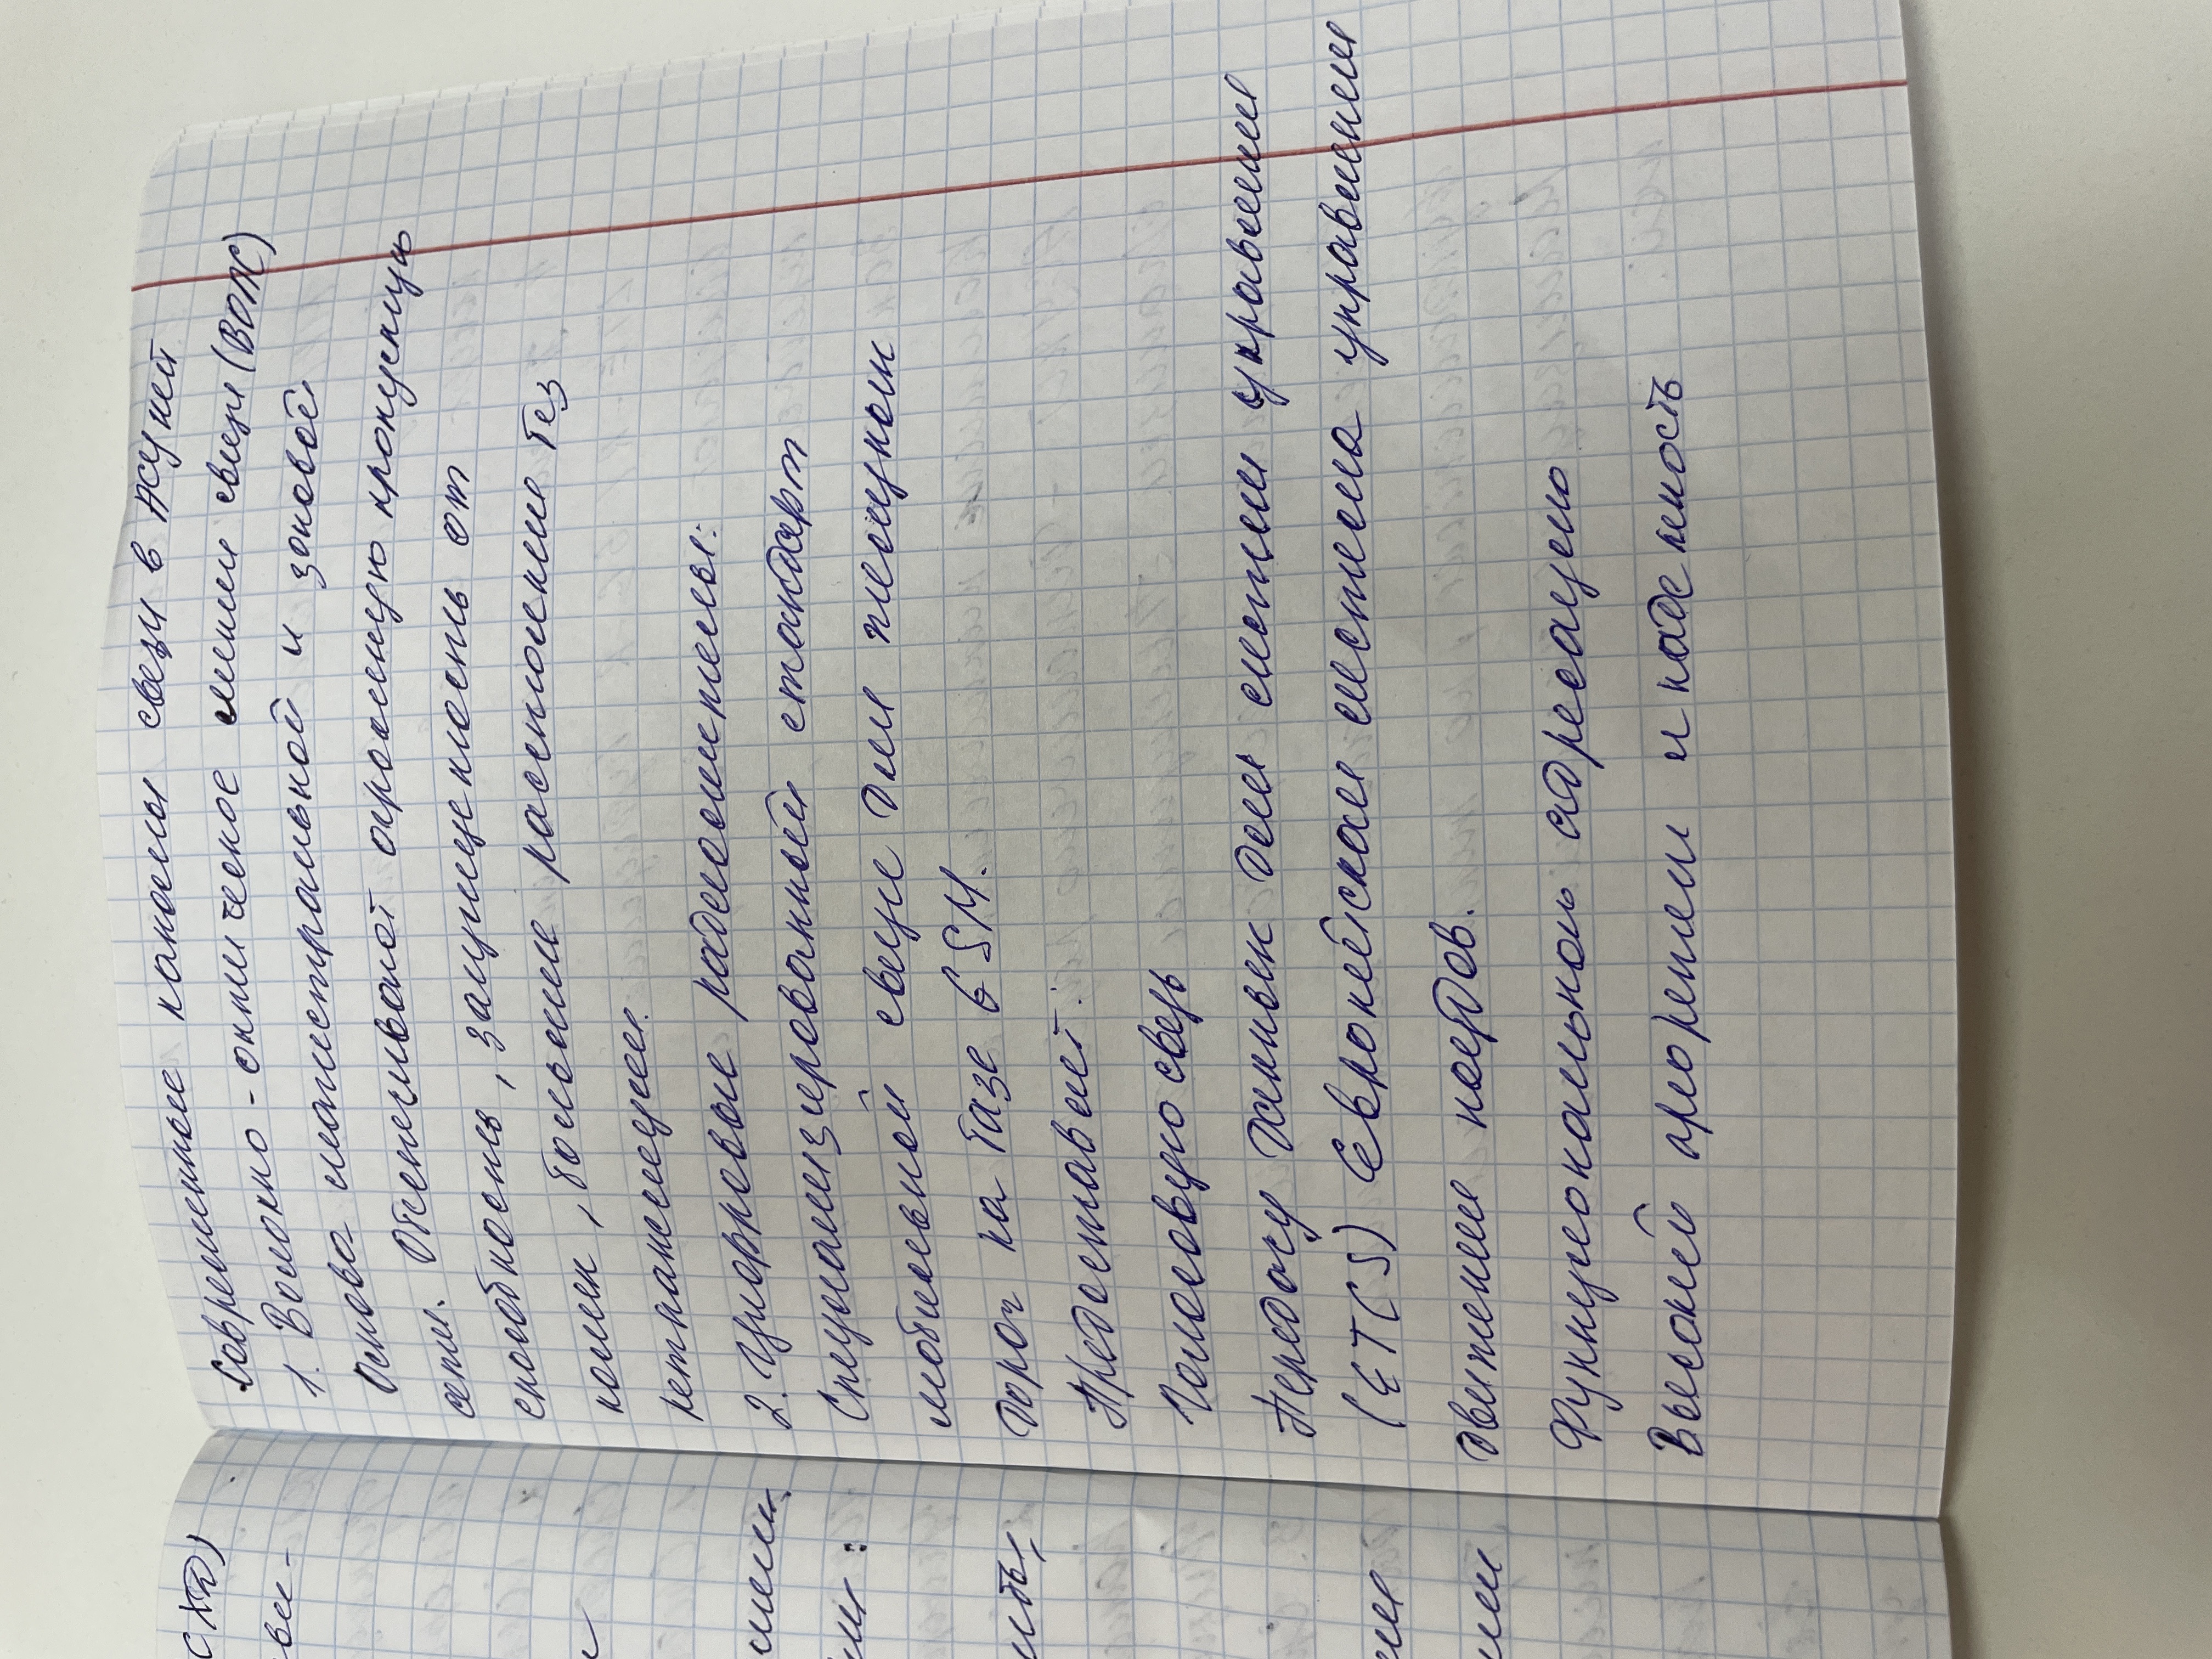 Современные каналы связи в АСУ ЖТ
1. Волокно-оптические линии связи (ВОЛС)
Основа магистральной и зоновой
сети. Обеспечивают огромную пропускную
способность, защищенность от
помех, большие расстояния без
ретрансляции.
2. Цифровые радиосистемы:
Специализированный стандарт
мобильной связи для железных
дорог на базе GSM.
Предоставляет:
Голосовую связь
Передачу данных для систем управления
(ETCS) Европейская система управления
движением поездов.
Функциональную адресацию
Высокий приоритет и надежность